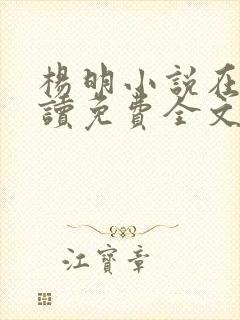 楊明小說在
讀免費全文
江寶章